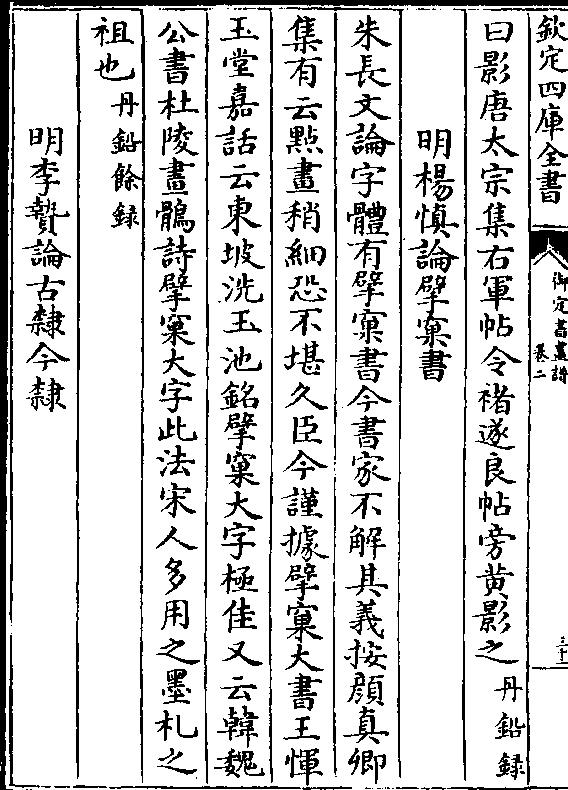 欽定四庫全書
御定書畫譜
卷二
三十二
曰影唐太宗集右軍帖令褚遂良帖旁黄影之丹鉛録
明楊慎論擘窠書
朱長文論字體有擘窠書今書家不解其義按顔真卿
集有云㸃畫稍細恐不堪久臣今謹據擘窠大書王惲
玉堂嘉話云東坡洗玉池銘擘窠大字極佳又云韓魏
公書杜陵畫鶻詩擘窠大字此法宋人多用之墨札之
祖也丹鉛餘録
明李贄論古隸今隸